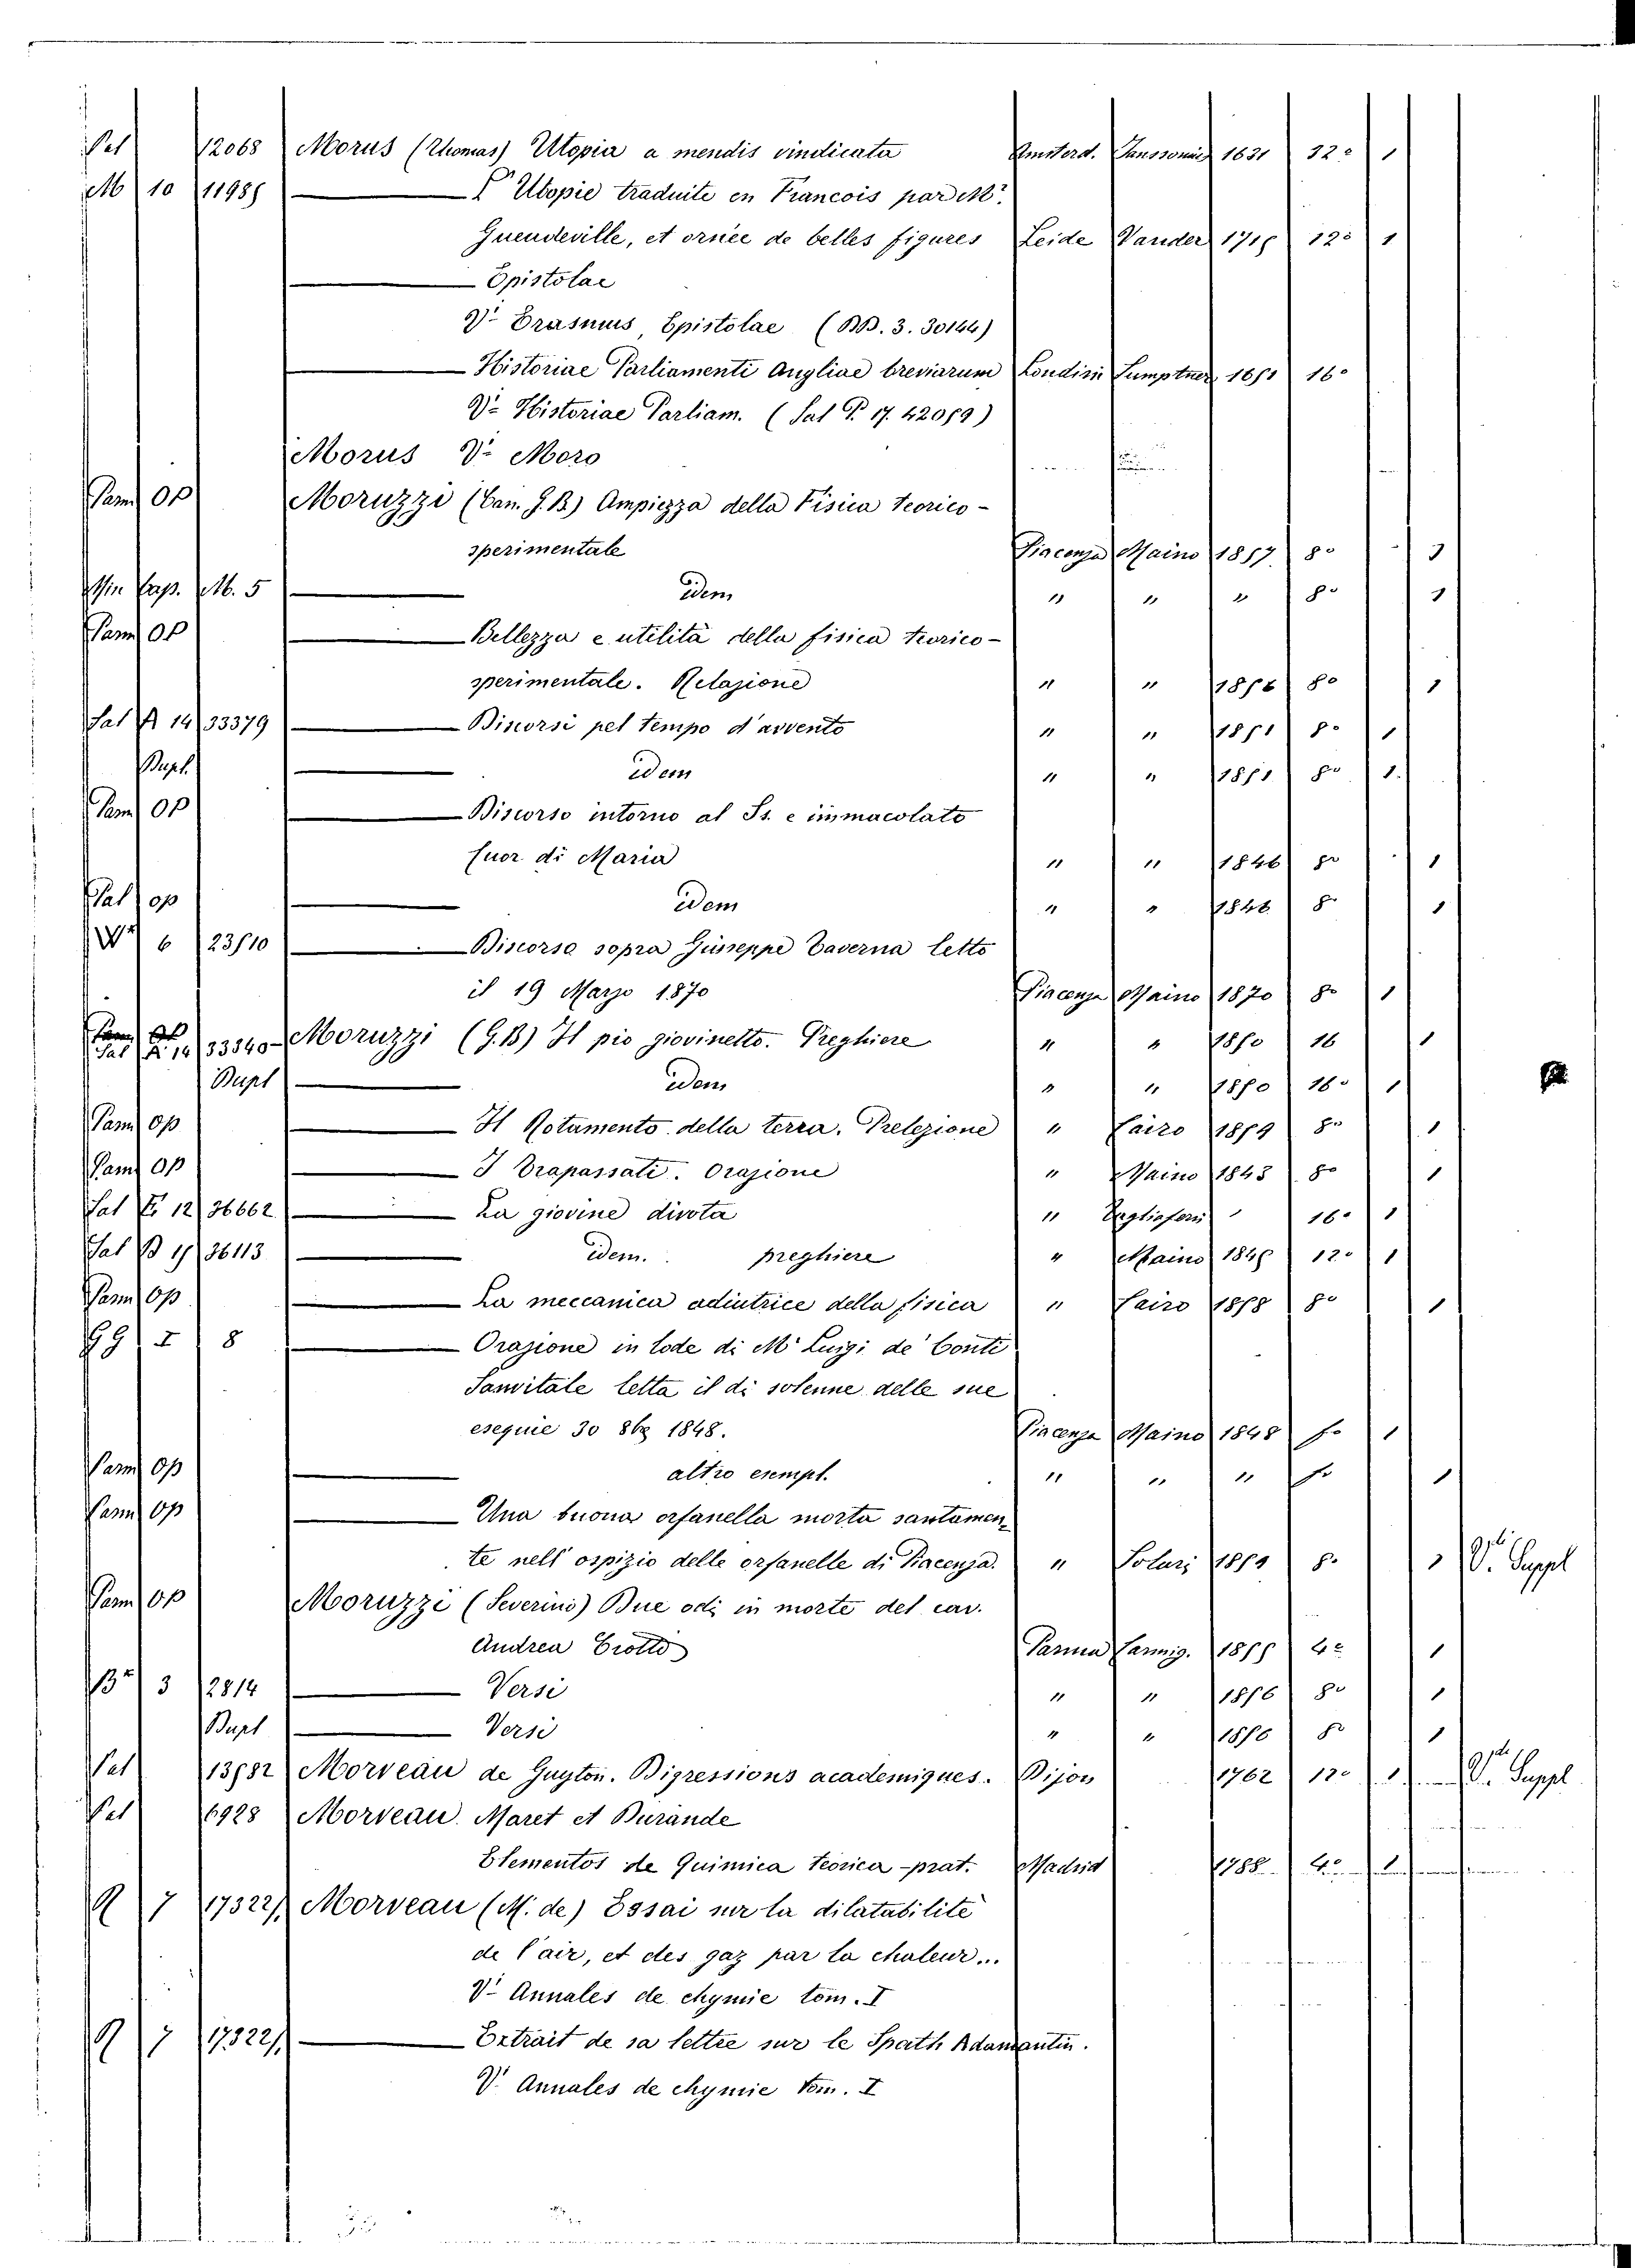 Pal 12068 Morus (Thomas) Utopia a mendis vindicata Amsterd. Janssonius 1631 32º 1
M 10 11985 — L'Utopie traduite en Francois par Mr.
Gueudeville, et ornée de belles figures Leide Vander 1715 12º 1
— Epistolae
V. Erasmus, Epistolae (BB. 3. 30144)
— Historiae Parliamenti Angliae breviarum Londini Sumptner 1651 16º
V. Historiae Parliam. (Sal P. 17. 42059)
Morus V. Moro
Pam OP Moruzzi (Can. G. B) Ampiezza della Fisica teorico-
sperimentale Piacenza Maino 1857 8º 1
Min Cap. M. 5 — idem " " " 8º 1
Pam OP — Bellezza e utilità della fisica teorico-
sperimentale. Relazione " " 1856 8º 1
Sal A 14 33379 — Discorsi pel tempo d'avvento " " 1851 8º 1
Dupl. — idem " " 1851 8º 1
Pam OP — Discorso intorno al Ss. e immacolato
Cuor di Maria " " 1846 8º 1
Pal op — idem " " 1846 8º 1
W 6 23510 — Discorso sopra Giuseppe Taverna letto
il 19 Marzo 1870 Piacenza Maino 1870 8º 1
Sal A 14 33340 Moruzzi (G. B) Il pio giovinetto. Preghiere " " 1850 16 1
Dupl — idem " " 1850 16º 1
Pam op — Il Rotamento della terra. Prelezione " Cairo 1859 8º 1
Pam OP — I Trapassati. Orazione " Maino 1843 8º 1
Sal 12 36662 — La giovine divota " Tagliaferri 16º 1
Sal B 15 36113 — idem. preghiere " Maino 1845 12º 1
Pam Op — La meccanica adiutrice della fisica " Cairo 1858 8º 1
GG I 8 — Orazione in lode di Mr Luigi de' Conti
Sanvitale letta il di solenne delle sue
esequie 30 8bre 1848. Piacenza Maino 1848 fº 1
Pam Op — altro esempl. " " " fº 1
Pam Op — Una buona orfanella morta santamen
te nell'ospizio delle orfanelle di Piacenza. " Solari 1859 8º 1 V. Suppl
Pam OP Moruzzi (Severino) Due odi in morte del cav.
Andrea Crotto Parma Carmig. 1855 4º 1
3 2814 — Versi " " 1856 8º 1
Dupl — Versi " " 1856 8º 1
Pal 13582 Morveau de Guyton. Digressions academiques. Dijon 1762 12º 1 V. Suppl
Pal 6928 Morveau. Maret et Durande
Elementos de Quimica teorica-prat. Madrid 1788 4º 1
7 17322/1 Morveau (M. de) Essai sur la dilatabilité
de l'air, et des gaz par la chaleur...
V. Annales de chymie tom. I
7 17322/1 — Extrait de sa lettre sur le Spath Adamantin.
V. Annales de chymie Tom. I